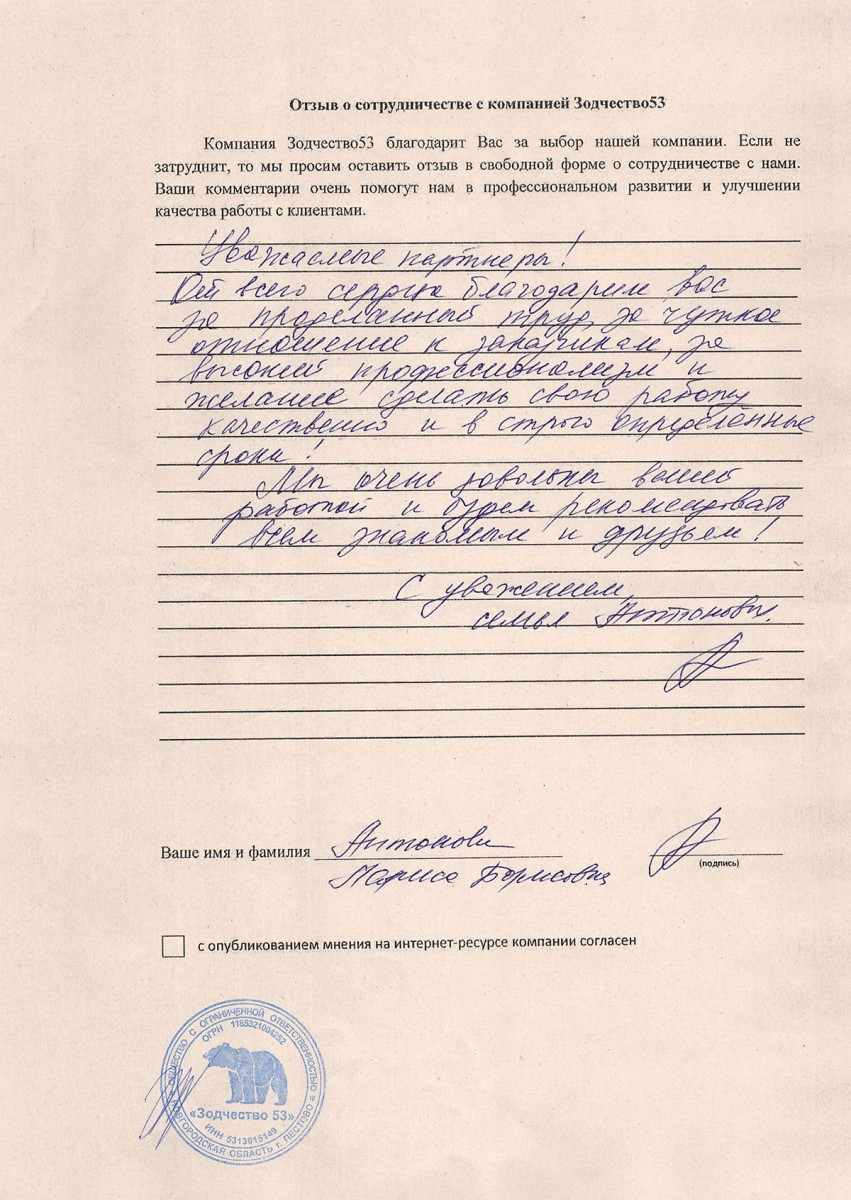 Отзыв о сотрудничестве с компанией Зодчество53
Компания Зодчество53 благодарит Вас за выбор нашей компании. Если не
затруднит, то мы просим оставить отзыв в свободной форме о сотрудничестве с нами.
Ваши комментарии очень помогут нам в профессиональном развитии и улучшении
качества работы с клиентами.
Уважаемые партнеры!
От всего сердца благодарим Вас
за проделанный труд, за чуткое
отношение к заказчикам, за
высокий профессионализм и
желание сделать свою работу
качественно и в строго определённые
сроки!
Мы очень довольны вашей
работой и будем рекомендовать
всем знакомым и друзьям!
С уважением,
семья Антоновых.
Ваше имя и фамилия Антонова
Лариса Борисовна
(подпись)
с опубликованием мнения на интернет-ресурсе компании согласен
ОБЩЕСТВО С ОГРАНИЧЕННОЙ ОТВЕТСТВЕННОСТЬЮ
ОГРН 1185321004252
«Зодчество 53»
ИНН 5313015149
НОВГОРОДСКАЯ ОБЛАСТЬ г. ПЕСТОВО